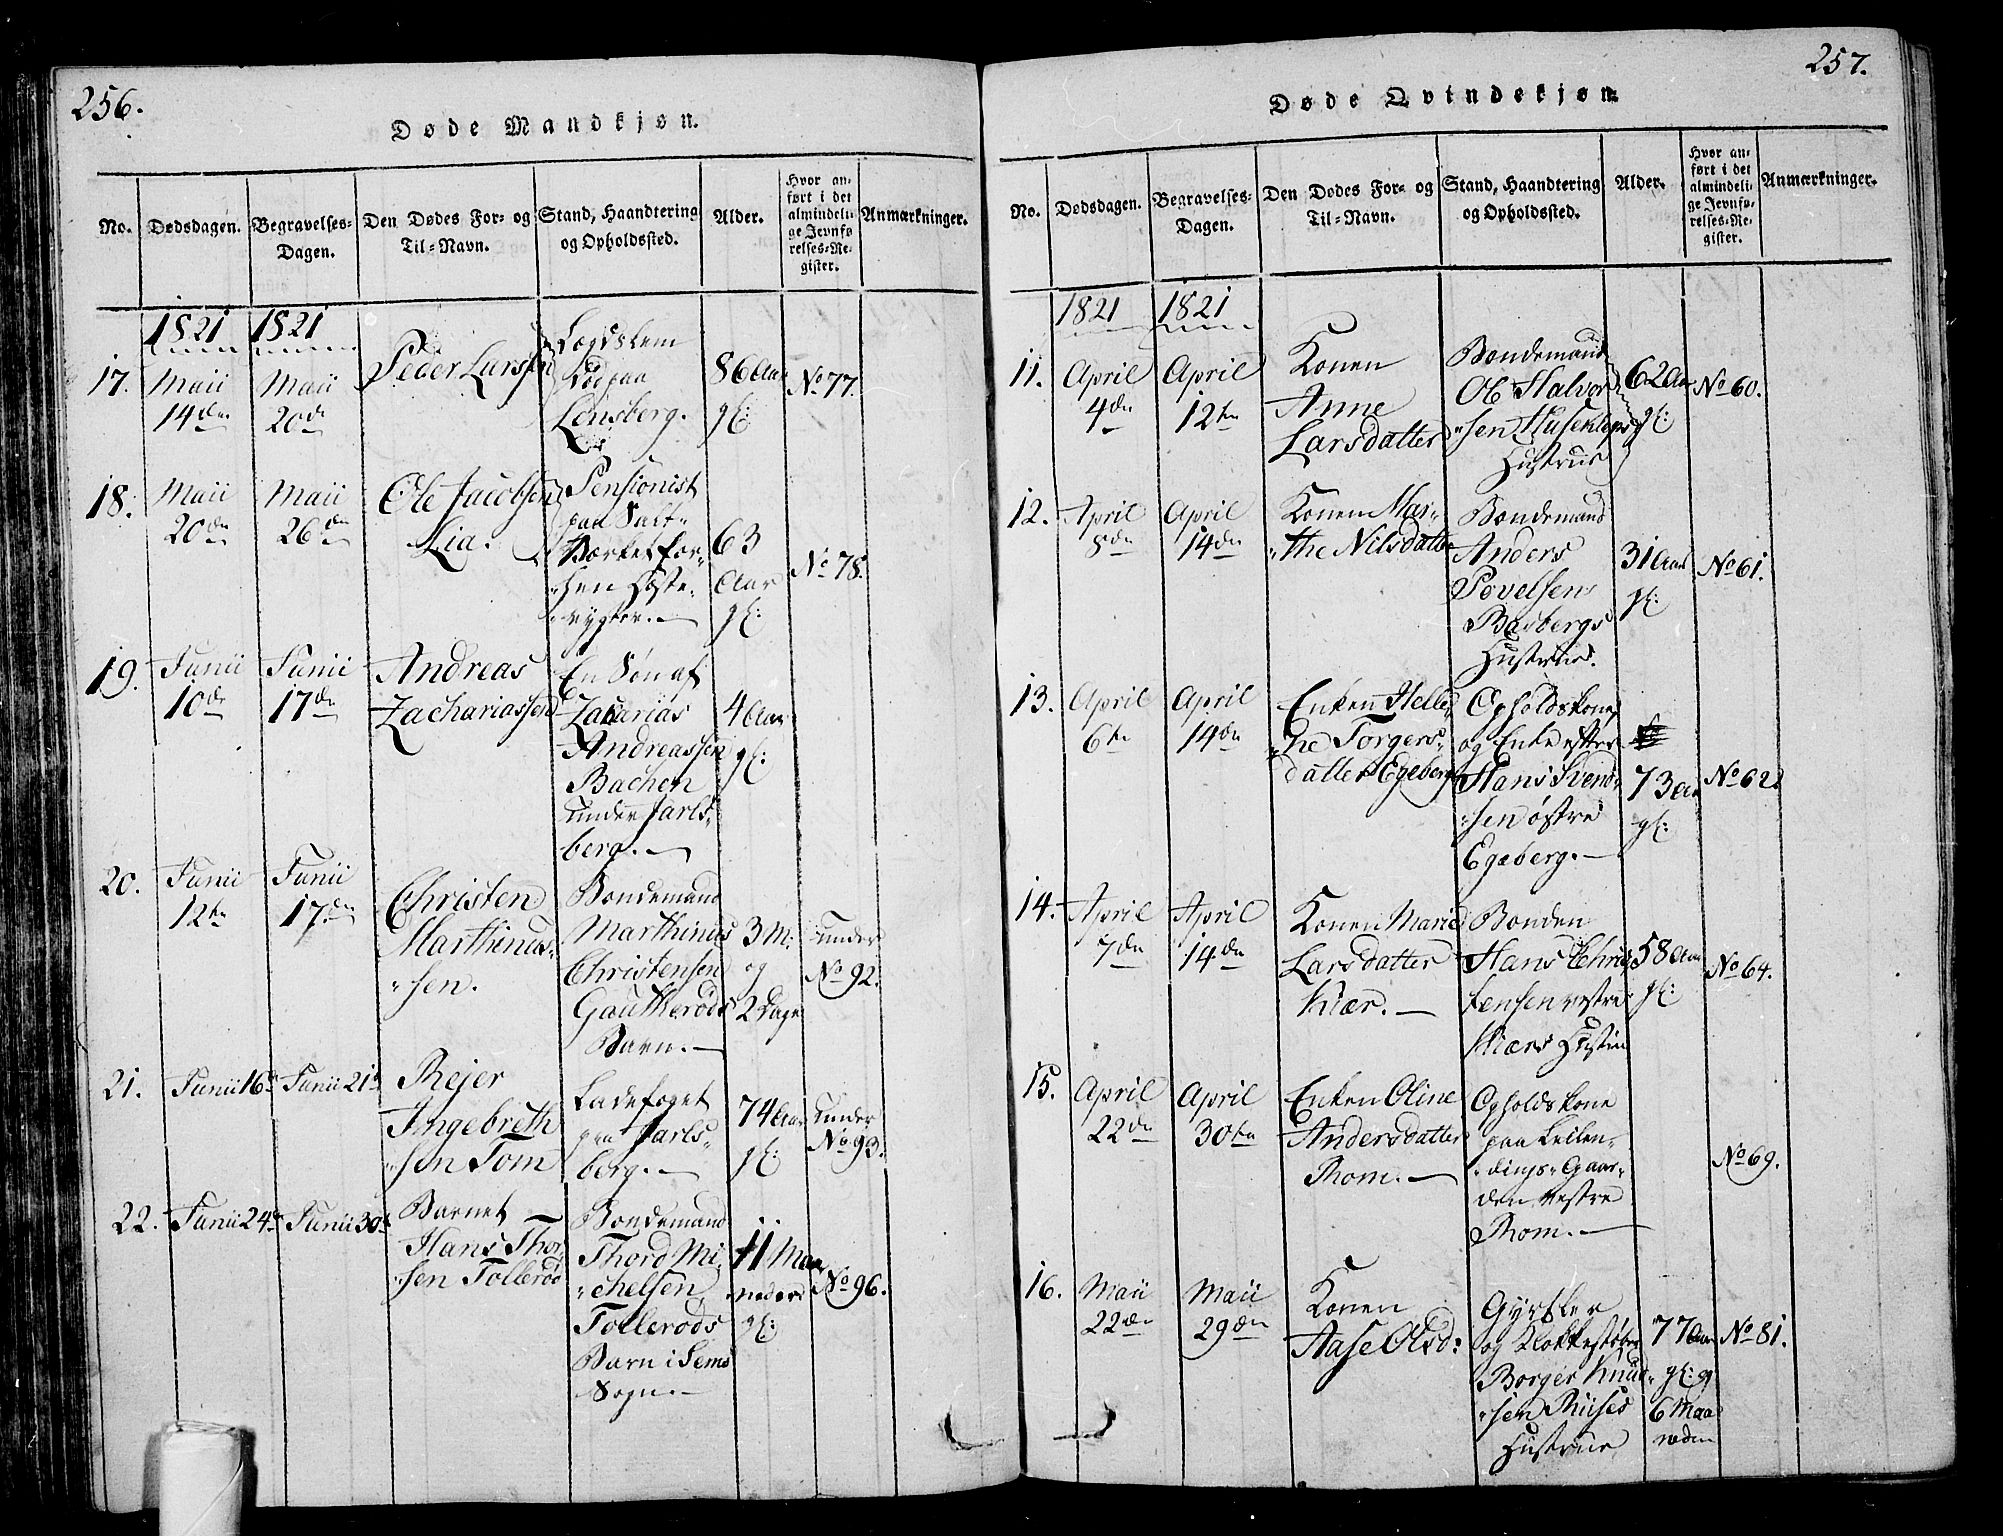 256.
Døde Mandkjøn.
No.
Dødsdagen.
Begravelses-
Dagen.
Den Dødes For- og
Til-Navn.
Stand, Haandtering
og Opholdssted.
Alder.
Hvor an-
ført i det
almindeli-
ge Jevnfø-
relses-Re-
gister.
Anmærkninger.
1821 1821
17.
Maii
14de
Maii
20de
Peder Larssen
Lægdslem
Lensberg.
86 Aar
gl:
No 77.
18.
Maii
20de
Maii
26de
Ole Jacobsen
Lia.
Pensionist
paa Salt-
Værket for-
63
Aar
gl:
No 78.
19.
Junii
10de
Junii
17de
Andreas
Zachariassen
En Søn af
Zacharias
Andreassen
Bachen
under Jarls-
berg.
4 Aar
gl:
20.
Junii
12te
Junii
17de
Christen
Marthinus-
sen.
Bondemand
Marthinus
Christensen
Gautherøds
Barn.
3 M:
og
2 Dage
under
No 92.
21.
Junii 16de
Junii 21de
Rejer
Ingebreth-
sen Tom
Ladefoget
paa Jarls-
berg.
74 Aar
gl:
under
No 93.
22.
Junii 24de
Junii 30te
Barnet
Hans Thor-
sen Tollerød
Bondemand
Thord Mi-
chelsen
Tollerøds
Barn i Sems
Sogn.
11 Maa-
neder
gl:
No 96.
257.
Døde Qvindekjøn.
No.
Dødsdagen.
Begravelses-
Dagen.
Den Dødes For- og
Til-Navn.
Stand, Haandtering
og Opholdssted.
Alder.
Hvor an-
ført i det
almindeli-
ge Jevnfø-
relses-Re-
gister.
Anmærkninger.
1821 1821
11.
April
4de
April
12te
Konen
Anne
Larsdatter
Bondemand
Ole Halvor-
sen Husekleps
Hustrue
62 Aar
gl:
No 60.
12.
April
8de
April
14de
Konen Mar-
the Nilsdatter
Bondemand
Anders
Povelsen
Basbergs
Hustrue.
31 Aar
gl:
No 61.
13.
April
6te
April
14de
Enken Helle-
ne Torgers-
datter Egeberg
Opholdskone,
og Enke efter
Hans Svend-
sen østre
Egeberg.
73 Aar
gl:
No 62
14.
April
7de
April
14de
Konen Marie
Larsdatter
Kiær.
Bonden
Hans Chris-
tensen vestre
Kiærs Hustrue
58 Aar
gl:
No 64.
15.
April
22de
April
30te
Enken Oline
Andersdatter
Rom.
Opholdskone
paa Leilen-
dings-Gaar-
den vestre
Rom.
No 69.
16.
Maii
22de
Maii
29de
Konen
Aase Olsd:
Gyrtler
og Klokkestøber
Borger Knud-
sen Riises
Hustrue
77 Aar
gl: og
6 Maa-
neder
No 81.